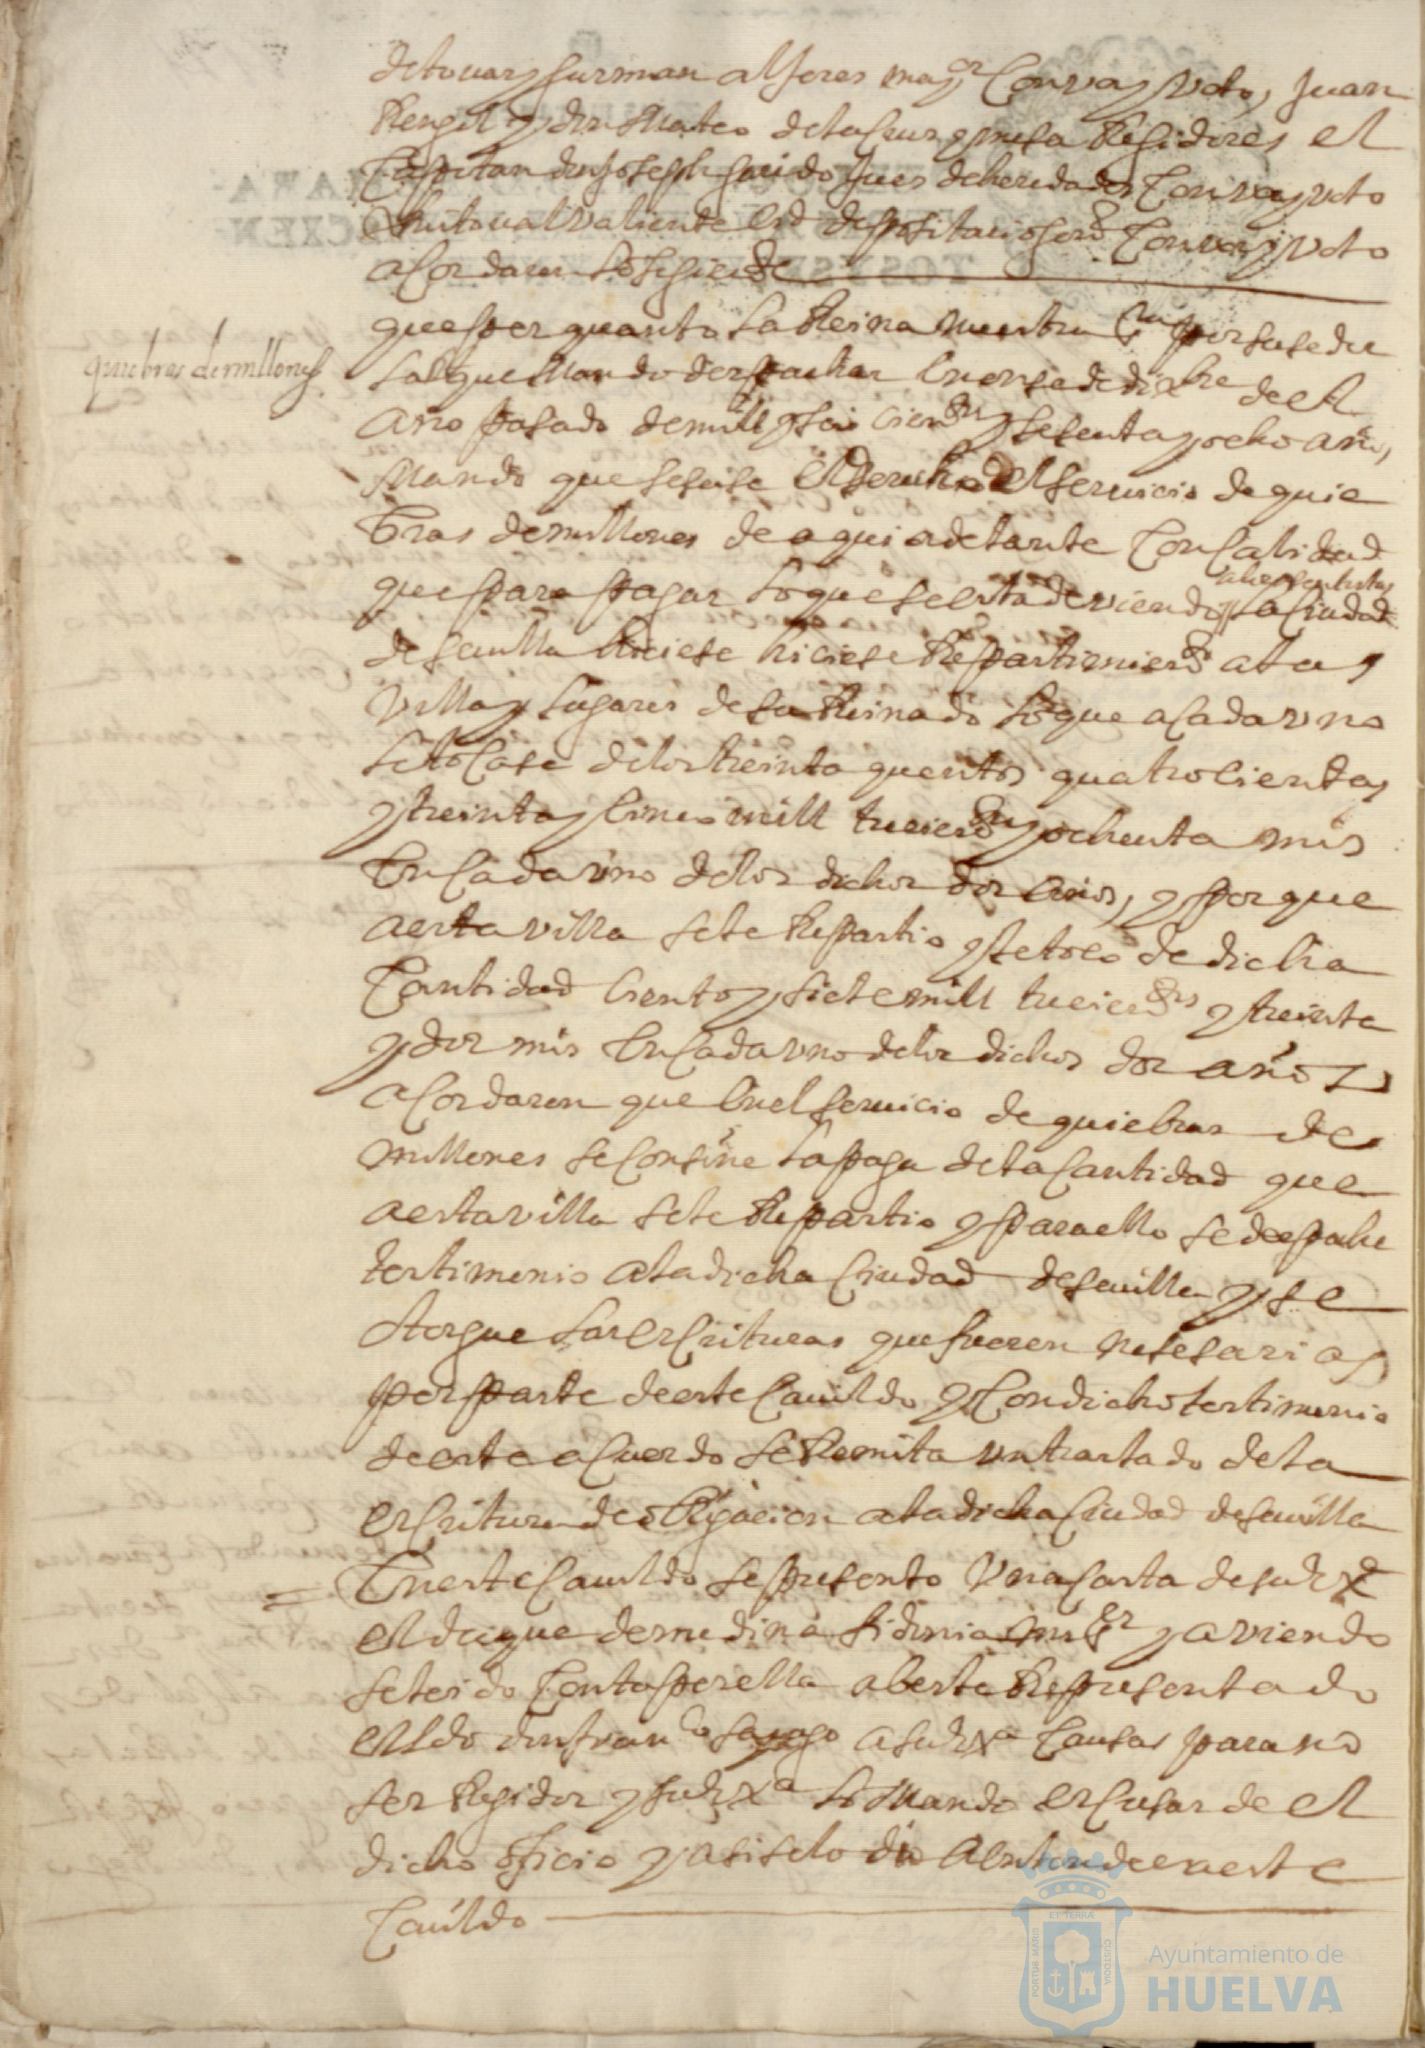 de touar y gusman alferes may.or Con vos y voto, Juan
Rengel y don Mateo de la Cueva y mesa Regidores el
Capitan don Joseph garrido Jues de heredades Con vos y voto
Christoual valiente depositario gen.l Con vos y voto
acordaron lo siguiente
quiebras de millones
que por quanto la Reina nuestra s.ra por su sedu
la que Mando despachar en onse de disbre de el
año pasado de mill y seis cientos y sesenta y ocho años,
Mando que sesase el derecho del seruicio de quie
bras de millones de aqui adelante Con Calidad
que para pagar lo que se esta deviendo la Ciudad
de seuilla hiciese hiciese Repartimiento a las
Villas y lugares de su Reinado lo que a Cada vno
le tocase de los treinta quentos quatrocientas
y treinta y cinco mill trecientos y ochenta mrs
En Cada vno de los dichos dos años, y porque
a esta villa se le Repartio y le toco de dicha
Cantidad ciento y siete mill trecientos y treinta
y dos mrs En Cada vno de los dichos dos años
acordaron que En el seruicio de quiebras de
millones se Consine la paga de la Cantidad que
a esta villa se le Repartio y para ello se despache
testimonio a la dicha Ciudad de seuilla y se
otorgue las escrituras que fueren nesesarias
por parte de este Cauildo y Con dicho testimonio
de este acuerdo se Remita vn traslado de la
escritura de obligacion a la dicha Ciudad de seuilla
= En este Cauildo se presento Vna Carta de su ex.a
el duque de medina sidonia mi s.r y aviendo
se leido Consta por ella averle Representado
el ldo don fran.co a su ex.a Causas para no
ser Regidor y su ex.a lo Mando escusar de el
dicho oficio y asi se lo dio a entender a este
Cauildo
Ayuntamiento de
HUELVA
PORTUS MARIS
ET TERRAE
CUSTODIA